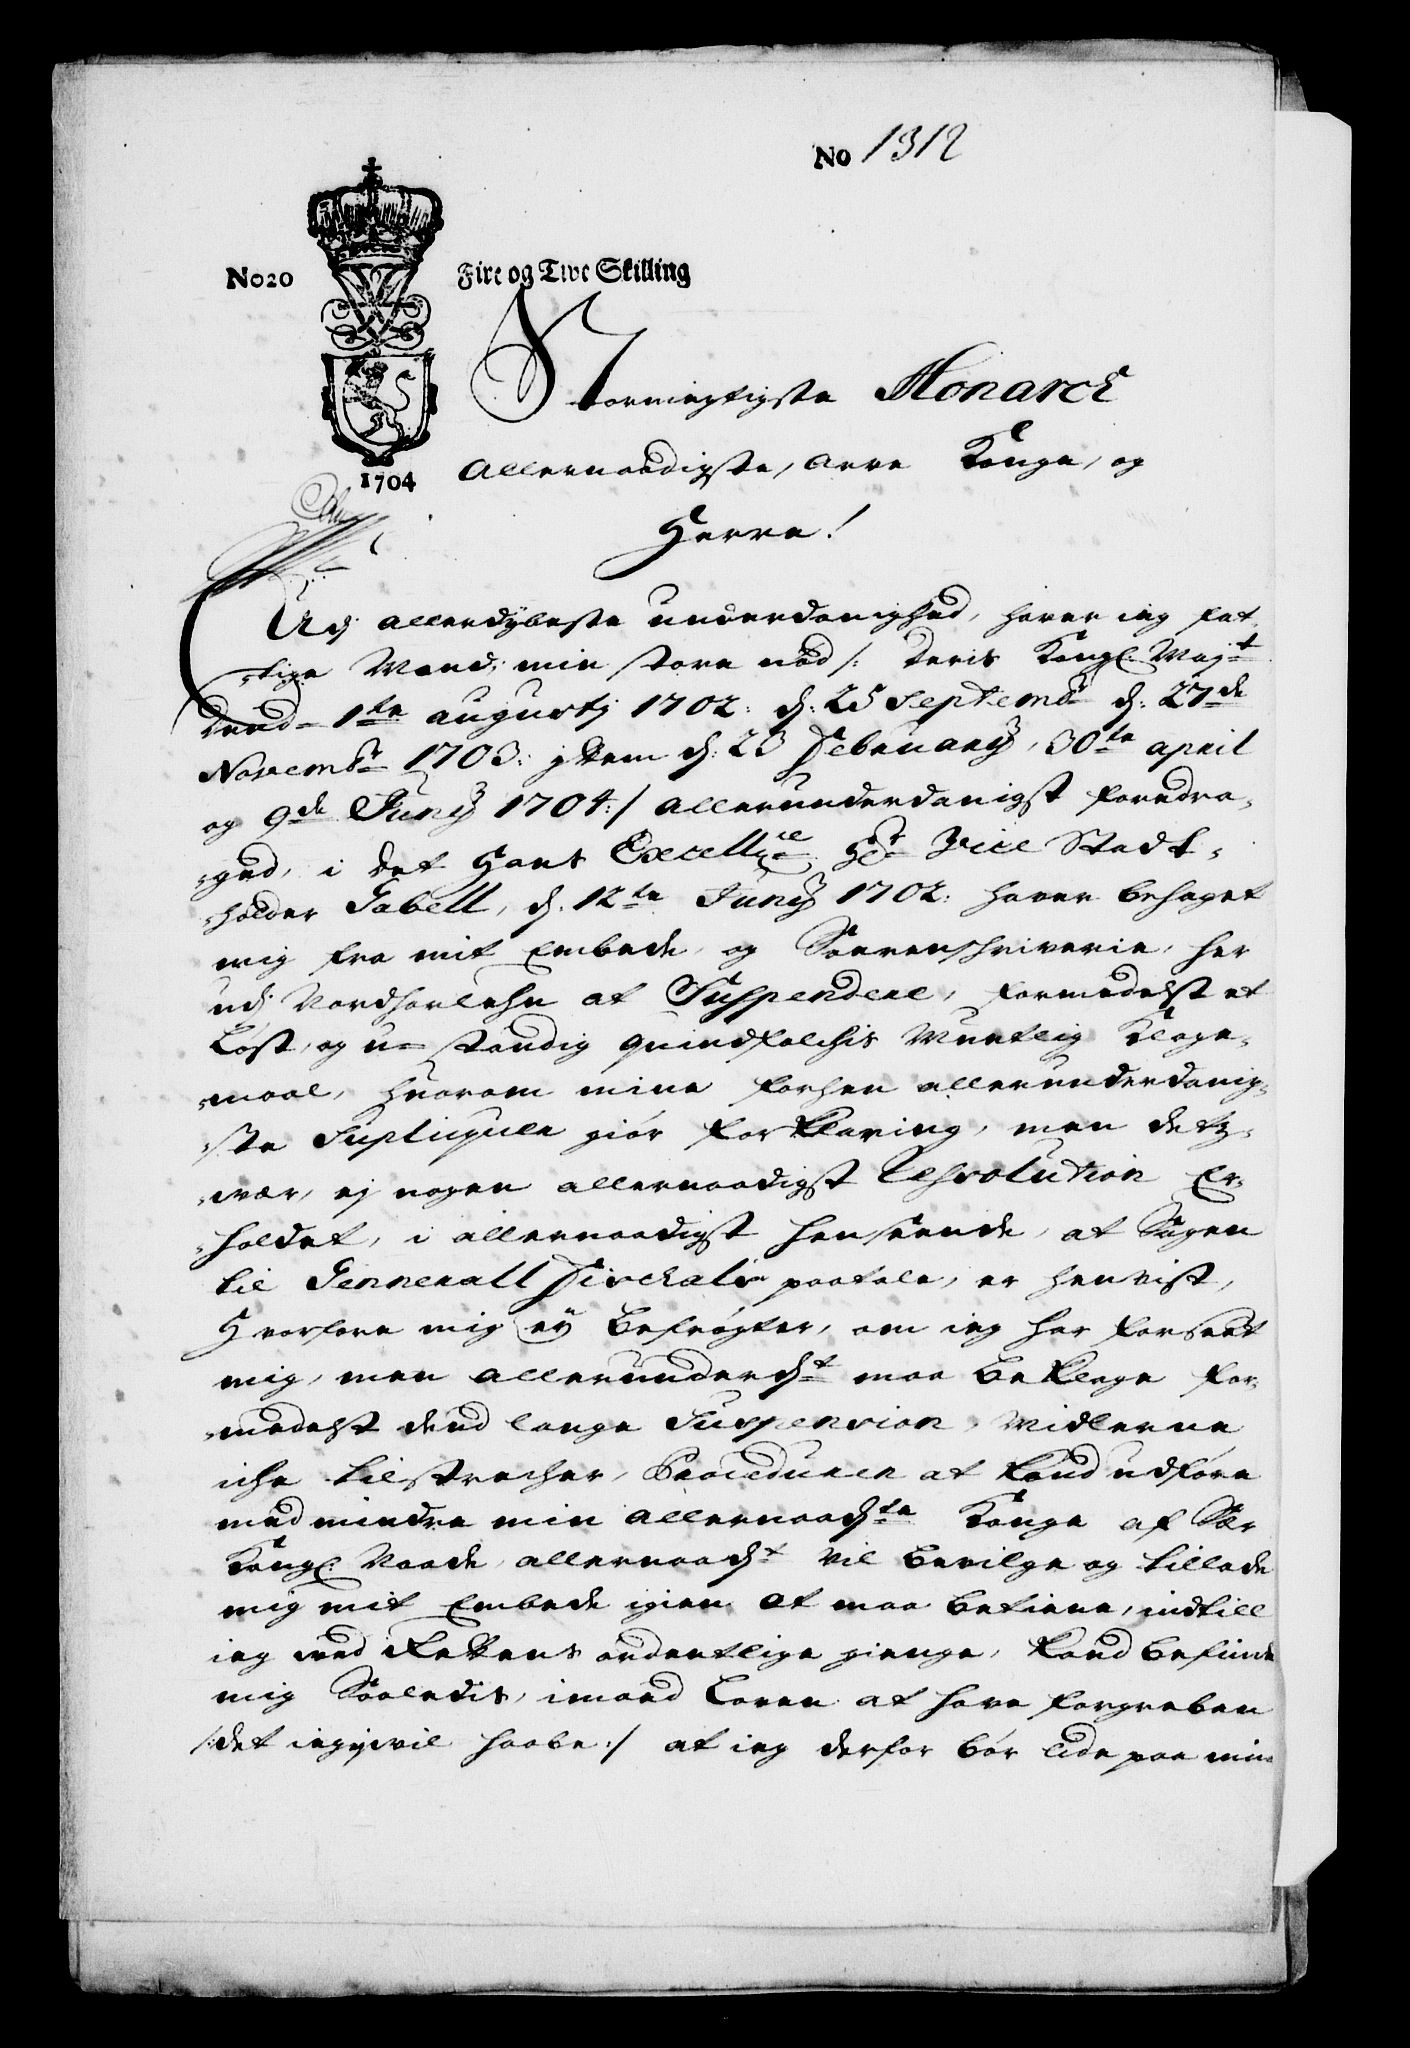 No 1312
No 20 Fire og Tive Skilling
Stormegtigste Monarch
1704 Allernaadigste, Arve Konge, og
Herre!
Udj allerdybeste underdanighed, haver ieg fat-
-tige Mand, min store nød /: Deris Kongl: Majt
Dend 1te augustj 1702: d: 25 Septembr d: 27de
Novembr 1703: jtem d: 23 Februarij, 30te april
og 9de Junij 1704:/ allerunderdanigst foredra-
-ged, i det Hans Excellce Hr Vice Stadt-
-holder Gabell, d. 12te Junij 1702: haver behaget
mig fra mit Embede og Sorenschriverie, her
udj Nordhorlehn at Suspendere, formedelst et
Løst, og u-standig quindfolchis Muntlig Klage-
-maal, huorom mine forhen allerunderdanig-
-ste Supliquer giør forklaring, men detz-
-vær, ej nogen allernaadigst Resolution Er-
-holdet, i allernaadigst henseende, at Sagen
til Generall Fischalis paatale, er henvist,
Hvorfore mig ey befrögter, om ieg har forseet
mig, men allerunderdt maa beklage for-
-medelst dend lange Suspension, Midlerne
iche tilstrecher, Proceduren at kand udføre
med mindre min allernaadste Konge af Sær
Kongl. Naade allernaadt vil bevilge og tillade
mig mit Embede igien at maa betiene, indtill
ieg ved Rettens ordentlige gienge, kand befinde
mig Saaledis, imoed Loven at have forgreben
/:det ieg ej vil haabe:/ at ieg derfor bør lide paa min